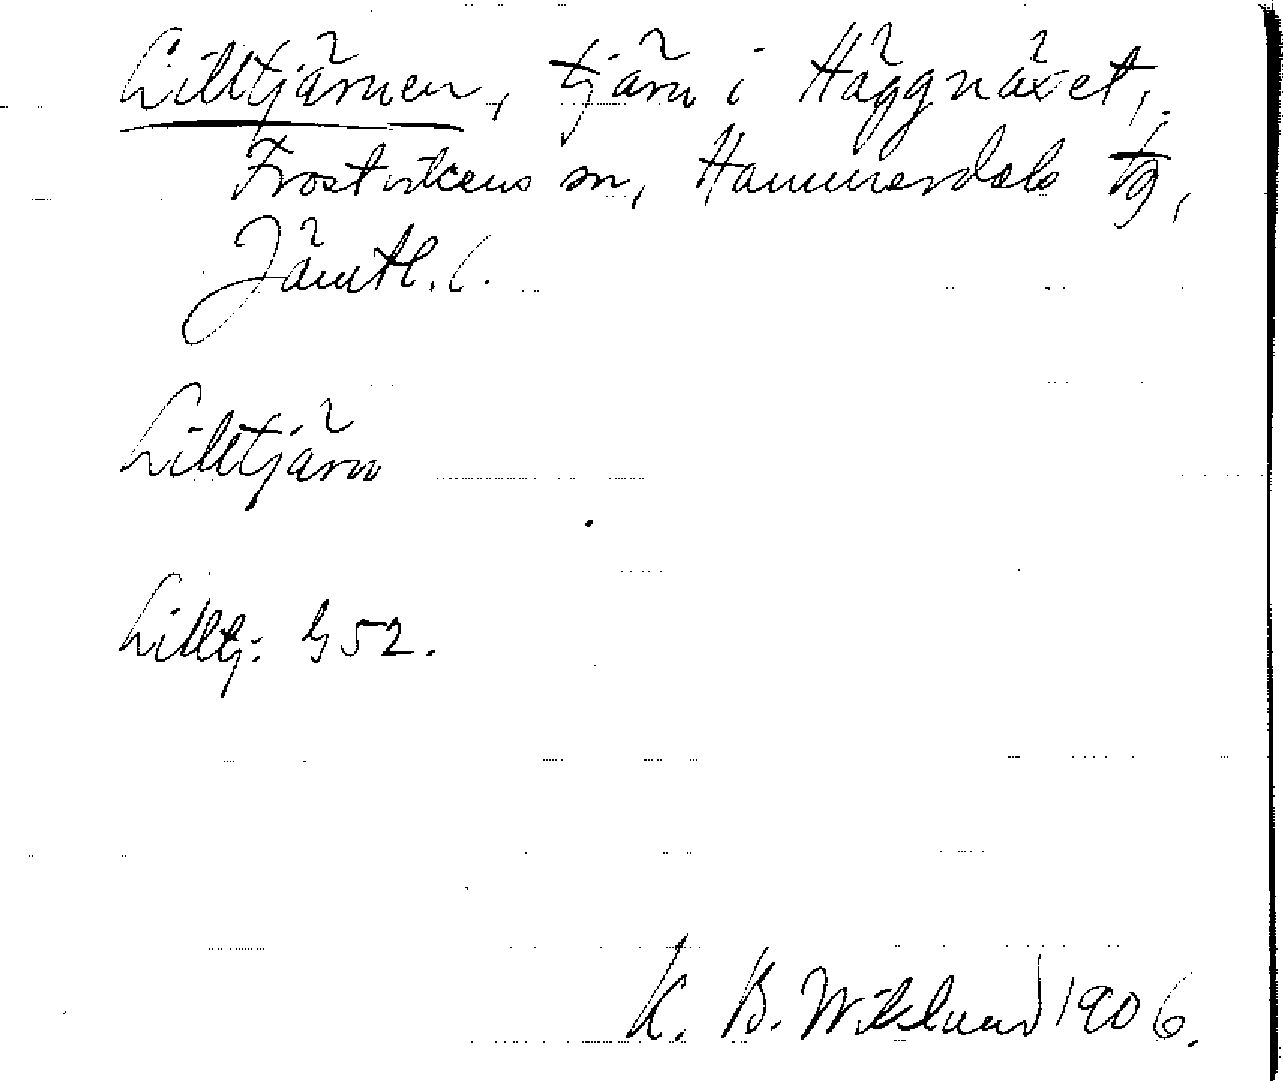 Lilltjärnen, tjärn i Häggnäset,
Frostvikens sn, Hammerdals tg,
Jämtl. l.
Lilltjärn
Lilltj: G 52.
K. B. Wiklund 1906.